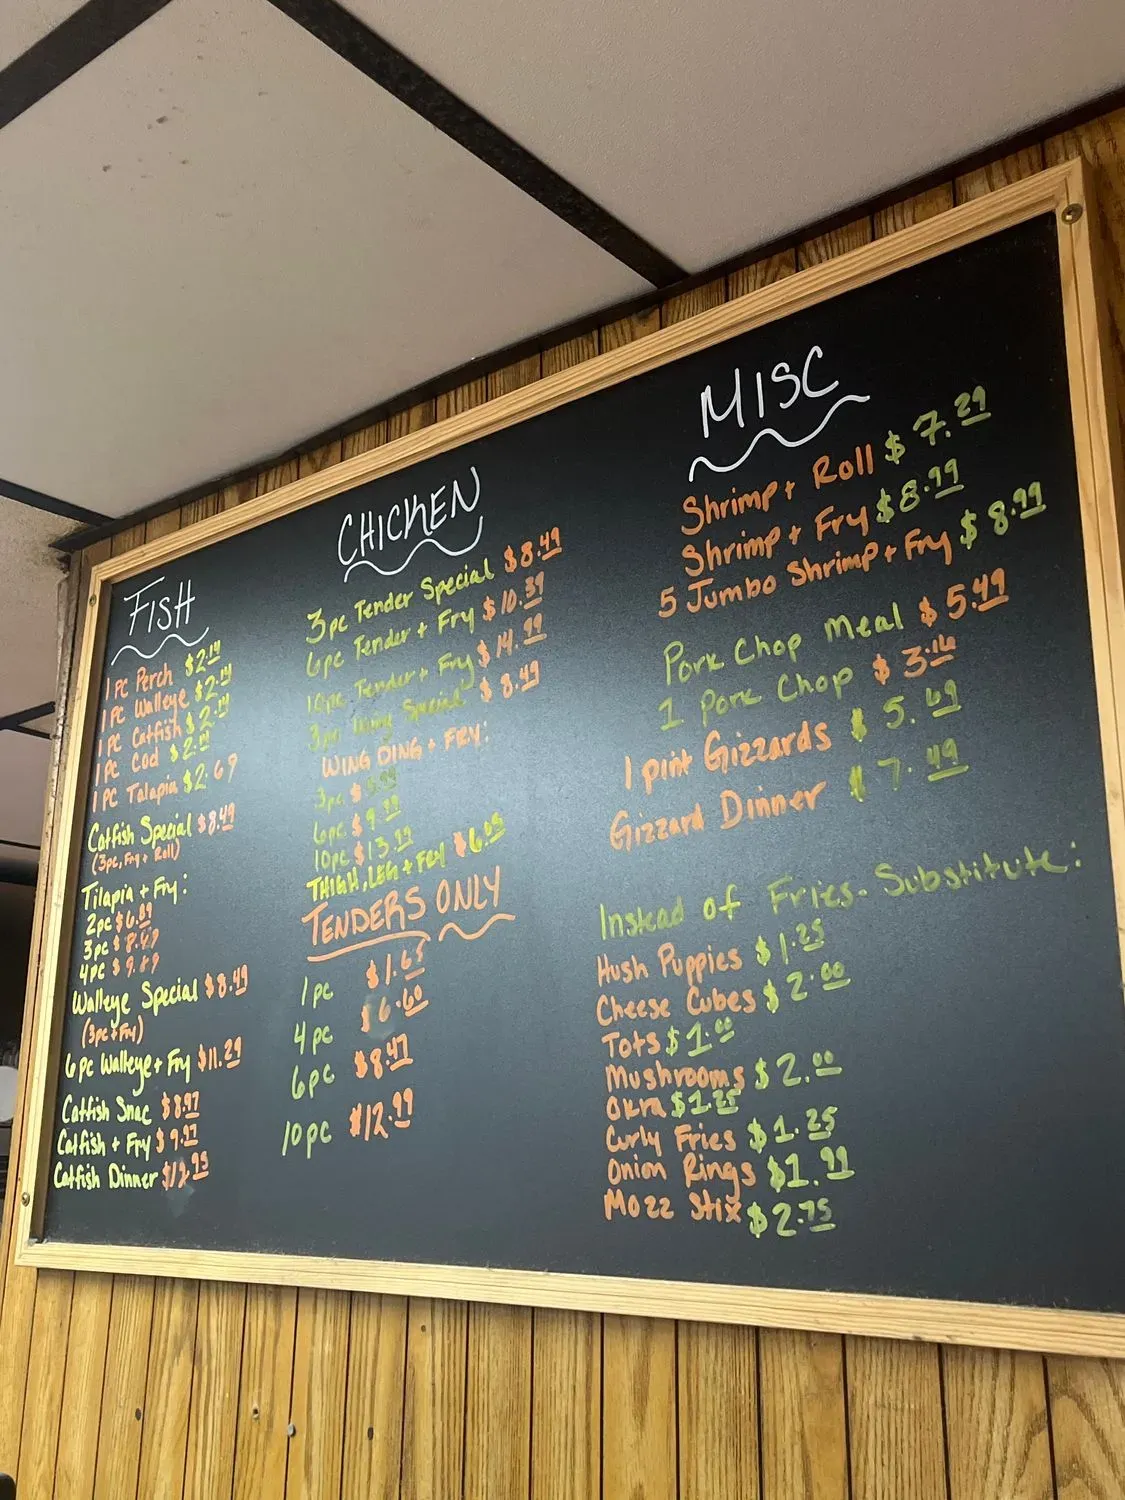 FISH
1 PC Perch $2.19
1 PC Walleye $2.19
1 PC Catfish $2.19
1 PC Cod $2.19
1 PC Talapia $2.69
Catfish Special $8.49
(3pc, Fry + Roll)
Tilapia + Fry:
2pc $6.89
3pc $8.49
4pc $9.89
Walleye Special $8.49
(3pc + Fry)
6 pc Walleye + Fry $11.29
Catfish Snac $8.97
Catfish + Fry $9.97
Catfish Dinner $12.95
CHICKEN
3pc Tender Special $8.49
6pc Tender + Fry $10.39
10pc Tender + Fry $14.99
3pc Wing Special $8.49
WING DING + FRY:
3pc $
6pc $9.39
10pc $13.99
THIGH, LEG + FRY $6.05
TENDERS ONLY
1 pc $1.65
4 pc $6.60
6pc $8.47
10pc $12.99
MISC
Shrimp + Roll $7.29
Shrimp + Fry $8.99
5 Jumbo Shrimp + Fry $8.99
Pork Chop Meal $5.49
1 Pork Chop $3.16
1 pint Gizzards $5.69
Gizzard Dinner $7.49
Instead of Fries - Substitute:
Hush Puppies $1.25
Cheese Cubes $2.00
Tots $1.00
Mushrooms $2.00
Okra $1.25
Curly Fries $1.25
Onion Rings $1.99
Mozz Stix $2.75